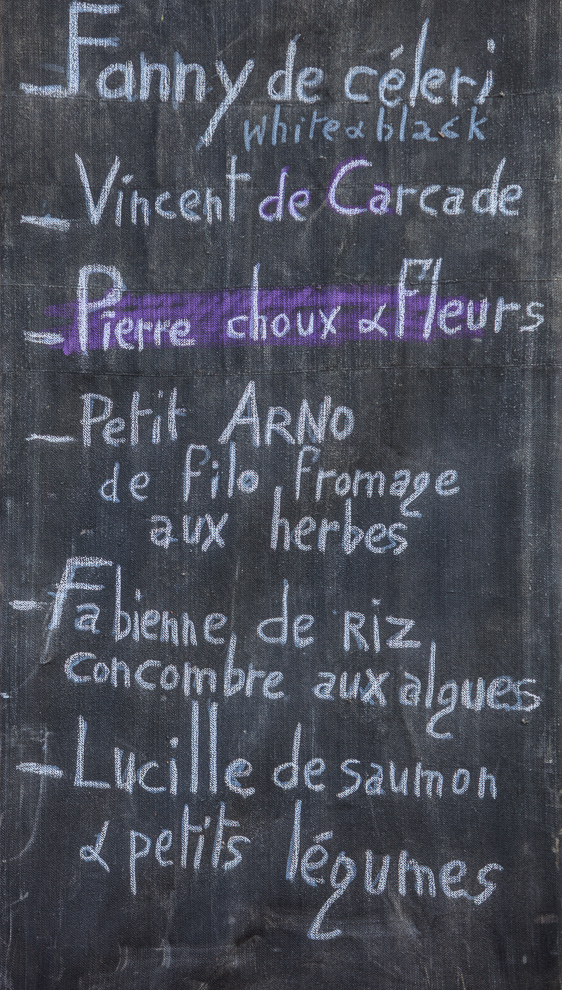 - Fanny de céleri
white & black
- Vincent de Carcade
- Pierre choux & Fleurs
- Petit ARNO
de filo fromage
aux herbes
- Fabienne de Riz
concombre aux algues
- Lucille de saumon
& petits légumes